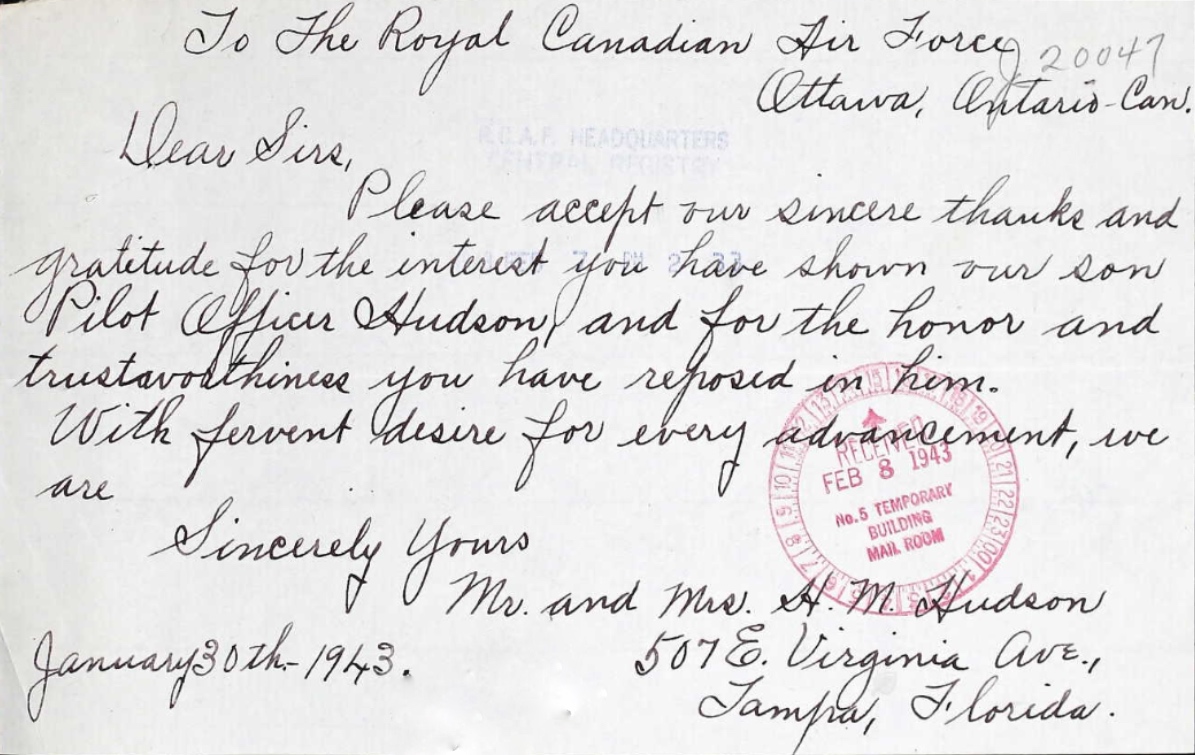 To The Royal Canadian Air Force
J 20047
Ottawa, Ontario-Can.
Dear Sirs,
R.C.A.F. HEADQUARTERS
CENTRAL REGISTRY
Please accept our sincere thanks and
gratitude for the interest you have shown our son
Pilot Officer Hudson, and for the honor and
trustworthiness you have reposed in him.
With fervent desire for every advancement, we
are
RECEIVED
FEB 8 1943
No. 5 TEMPORARY
BUILDING
MAIL ROOM
Sincerely Yours
Mr. and Mrs. H. M. Hudson
January 30th-1943.
507 E. Virginia Ave.,
Tampa, Florida.